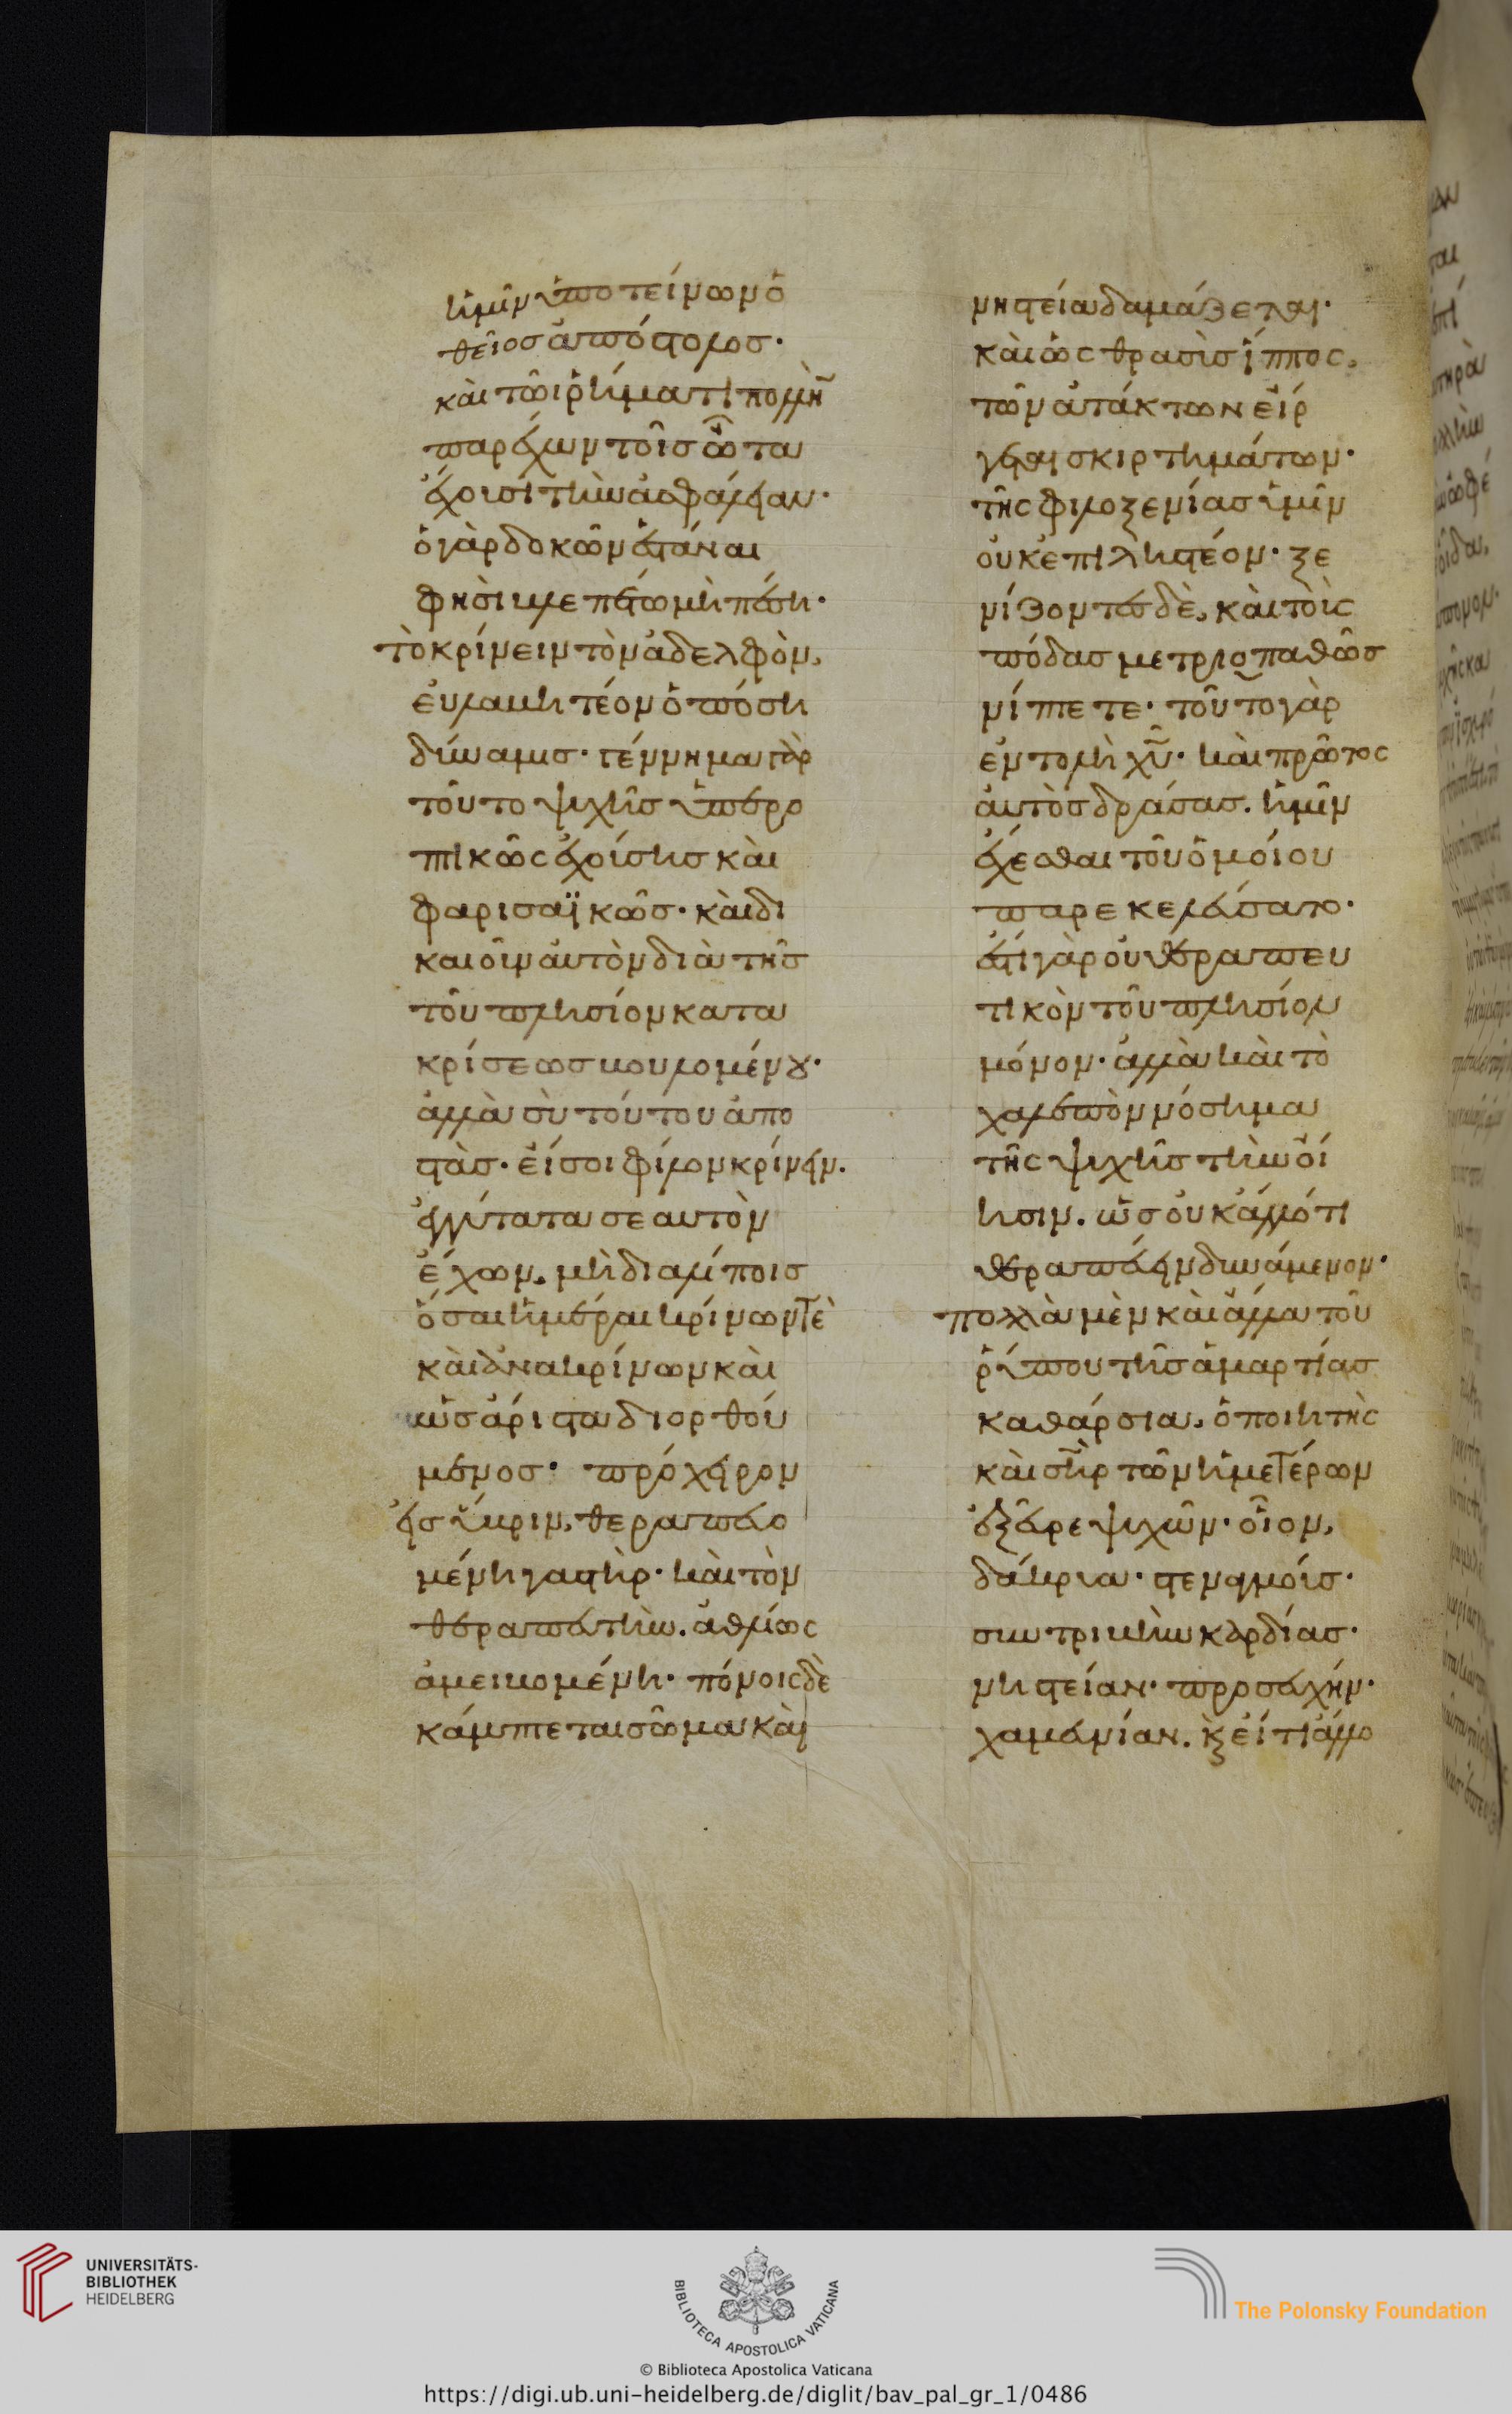 ἡμῖν ὑποτείνων ὁ
θεῖος ἀπόστολος·
καὶ τῶι ῥήματι πολλὴν
παρέχων τοῖς ὦτα
ἔχουσι τὴν ἀσφάλειαν·
ὁ γὰρ δοκῶν ἑστάναι
φησὶ βλεπέτω μὴ πέση·
τὸ κρίνειν τὸν ἀδελφὸν,
εὐλαβητέον ὁπόση
δύναμις· γέννημα γὰρ
τοῦτο ψυχῆς ὑπερο
πτικῶς ἐχούσης καὶ
φαρισαϊκῶς· καὶ δι
καιοῦν αὐτὸν διὰ τῆς
τοῦ πλησίον κατα
κρίσεως βουλομένου·
ἀλλὰ σὺ τούτου ἀπο
στὰς· εἴ σοι φίλον κρίνειν.
ἐγγύτατα σεαυτὸν
ἔχων. μὴ διαλίποις
ὅσαι ἡμέραι κρίνων τὲ
καὶ ἀνακρίνων καὶ
ὡς ἄριστα διορθού
μενος· πρόχειρον
εἰς ὕβριν, θεραπευο
μένη γαστὴρ· καὶ τὸν
θεραπευτὴν. ἀθλίως
ἀμειβομένη· πόνοις δὲ
κάμπτεται σῶμα καὶ
νηστεία δαμάζεται·
καὶ ὡς θρασὺς ἵππος,
τῶν ἀτάκτων εἴρ
γεται σκιρτημάτων·
τῆς φιλοξενίας ὑμῖν
οὐκ ἐπιληστέον· ξε
νίζοντες δὲ, καὶ τοὺς
πόδας μετριοπαθῶς
νίπτετε· τοῦτο γὰρ
ἐντολὴ χυ· καὶ πρῶτος
αὐτὸς δράσας. ἡμῖν
ἔχεσθαι τοῦ ὁμοίου
παρεκελεύσατο·
ἔστι γὰρ οὐ θεραπευ
τικὸν τοῦ πλησίον
μόνον· ἀλλὰ καὶ τὸ
χαλεπὸν νόσημα
τῆς ψυχῆς τὴν οἴ
ησιν. ὡς οὐκ ἄλλό τι
θεραπεύειν δυνάμενον·
πολλὰ μὲν καὶ ἄλλα τοῦ
ῥύπου τῆς ἁμαρτίας
καθάρσια, ὁ ποιητὴς
καὶ σηρ τῶν ἡμετέρων
ἐξεῦρε ψυχῶν· οἷον,
δάκρυα· στεναγμούς·
συντριβὴν καρδίας·
νηστείαν· προσευχήν·
χαμευνίαν. κ εἴ τι ἄλλο
UNIVERSITÄTS-
BIBLIOTHEK
HEIDELBERG
BIBLIOTECA APOSTOLICA VATICANA
© Biblioteca Apostolica Vaticana
The Polonsky Foundation
https://digi.ub.uni-heidelberg.de/diglit/bav_pal_gr_1/0486